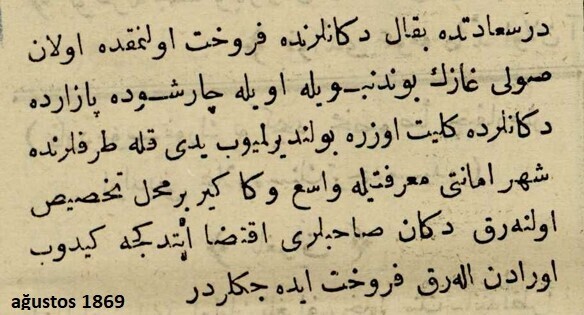 درسعادتده بقال دكانلرنده فروخت اولنمقده اولان
صولی غازك بوندنبویله اویله چارشوده پازارده
دكانلرده كلیت اوزره بولندیرلمیوب یدی قله طرفلرنده
شهر امانتی معرفتیله واسع وكاكیر بر محل تخصیص
اولنه‌رق دكان صاحبلری اقتضا ایتدكجه كیدوب
اورادن اله‌رق فروخت ایده جكلردر
ağustos 1869